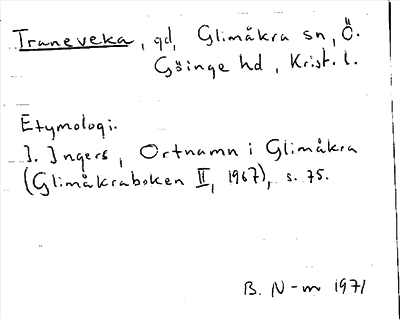 Traneveka, gd, Glimåkra sn, Ö.
Göinge hd, Krist. l.
Etymologi.
I. Ingers, Ortnamn i Glimåkra
(Glimåkraboken II, 1967), s. 75.
B. N-m 1971